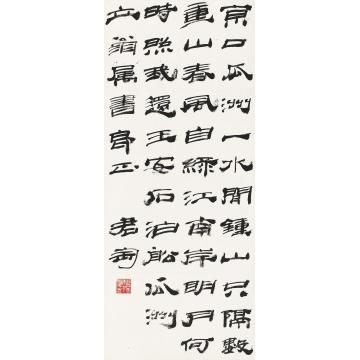 京口瓜洲一水間鍾山只隔數
重山春風自綠江南岸明月何
時照我還王安石泊舩瓜洲
翁属書正 君匋